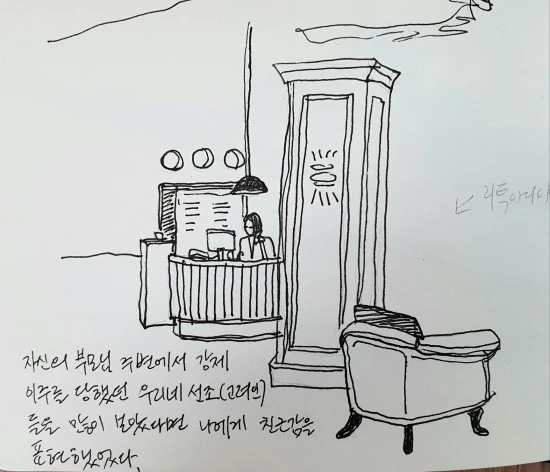 리투아니아
자신의 부모님 주변에서 강제
이주를 당했던 우리네 선조(고려인)
들을 많이 보았다면 나에게 친근감을
표현했었다.